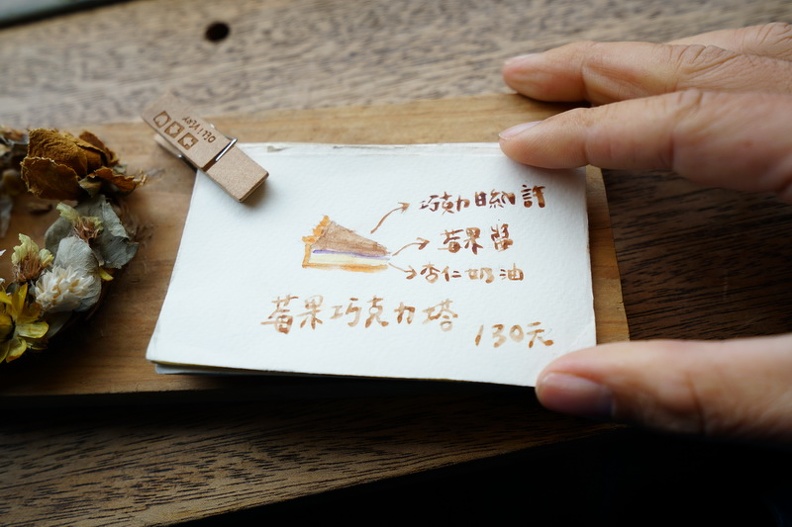 巧克力甘納許
莓果醬
杏仁奶油
莓果巧克力塔
130元